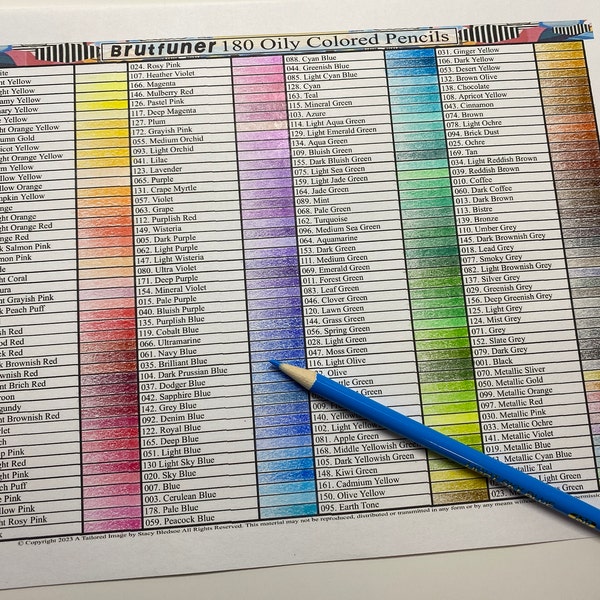 Brutfuner 180 Oily Colored Pencils
Yellow
Yellow
Yellow
Yellow
Yellow
Orange Yellow
Gold
Yellow
Orange Yellow
Yellow
Yellow Orange
Yellow
Orange
Orange Red
Orange
Salmon Pink
Pink
Coral
Grayish Pink
Peach Puff
Red
Red
Brownish Red
Red
Brich Red
Brownish Red
Pink
Red
Pink
Puff
Pink
Rosy Pink
Pink
024. Rosy Pink
107. Heather Violet
166. Magenta
146. Mulberry Red
126. Pastel Pink
117. Deep Magenta
127. Plum
172. Grayish Pink
055. Medium Orchid
093. Light Orchid
041. Lilac
123. Lavender
065. Purple
131. Crape Myrtle
057. Violet
063. Grape
112. Purplish Red
149. Wisteria
005. Dark Purple
062. Light Purple
147. Light Wisteria
080. Ultra Violet
171. Deep Purple
154. Mineral Violet
015. Pale Purple
040. Bluish Purple
135. Purplish Blue
119. Cobalt Blue
066. Ultramarine
061. Navy Blue
035. Brilliant Blue
104. Dark Prussian Blue
037. Dodger Blue
042. Sapphire Blue
142. Grey Blue
092. Denim Blue
122. Royal Blue
165. Deep Blue
051. Light Blue
130 Light Sky Blue
020. Sky Blue
007. Blue
003. Cerulean Blue
178. Pale Blue
059. Peacock Blue
088. Cyan Blue
044. Greenish Blue
085. Light Cyan Blue
128. Cyan
163. Teal
115. Mineral Green
103. Azure
114. Light Aqua Green
129. Light Emerald Green
134. Aqua Green
109. Bluish Green
155. Dark Bluish Green
175. Light Sea Green
159. Light Jade Green
164. Jade Green
089. Mint
068. Pale Green
162. Turquoise
096. Medium Sea Green
064. Aquamarine
153. Dark Green
111. Medium Green
069. Emerald Green
011. Forest Green
083. Leaf Green
046. Clover Green
120. Lawn Green
144. Grass Green
056. Spring Green
028. Light Green
047. Moss Green
116. Light Olive
Olive
Green
009.
140. Yellow
102.
081. Apple Green
168. Middle Yellowish Green
105. Dark Yellowish Green
148. Kiwi Green
161. Cadmium Yellow
150. Olive Yellow
095. Earth Tone
031. Ginger Yellow
106. Dark Yellow
053. Desert Yellow
132. Brown Olive
138. Chocolate
108. Apricot Yellow
043. Cinnamon
074. Brown
078. Light Ochre
094. Brick Dust
025. Ochre
169. Tan
034. Light Reddish Brown
039. Reddish Brown
010. Coffee
060. Dark Coffee
013. Dark Brown
113. Bistre
139. Bronze
110. Umber Grey
145. Dark Brownish Grey
018. Lead Grey
077. Smoky Grey
082. Light Brownish Grey
137. Silver Grey
029. Greenish Grey
156. Deep Greenish Grey
125. Light Grey
124. Mist Grey
071. Grey
152. Slate Grey
079. Dark Grey
001. Black
070. Metallic Sliver
050. Metallic Gold
099. Metallic Orange
097. Metallic Red
030. Metallic Pink
037. Metallic Ochre
141. Metallic Violet
Metallic Blue
Metallic Teal
Light Green
023. Metallic Green
© Copyright 2023 A Tailored Image by Stacy Bledsoe All Rights Reserved. This material may not be reproduced, distributed or transmitted in any form or by any means without